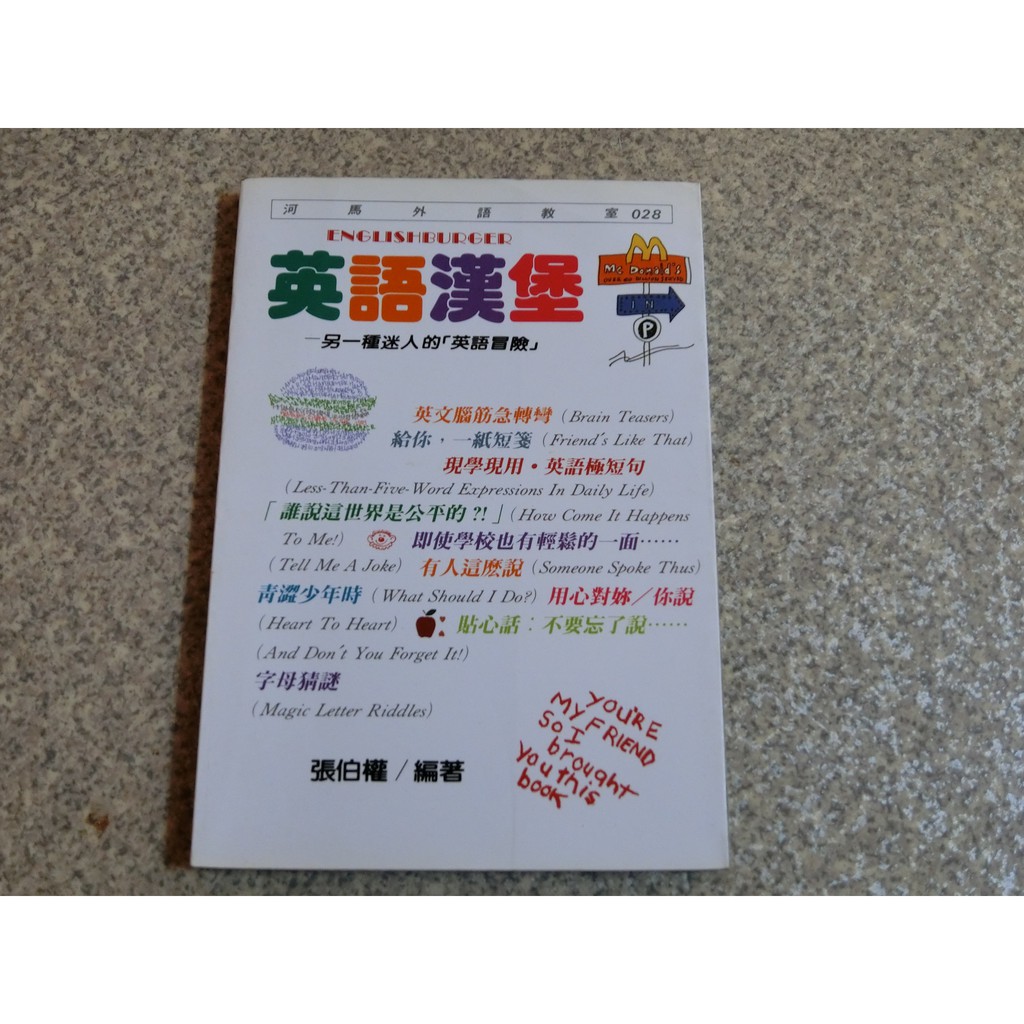 河馬外語教室 028
ENGLISHBURGER
英語漢堡
—另一種迷人的「英語冒險」
Mc Donald's
IN
P
英文腦筋急轉彎 (Brain Teasers)
給你，一紙短箋 (Friend's Like That)
現學現用・英語極短句
(Less-Than-Five-Word Expressions In Daily Life)
「誰說這世界是公平的?!」(How Come It Happens
To Me!) 即使學校也有輕鬆的一面……
(Tell Me A Joke) 有人這麼說 (Someone Spoke Thus)
青澀少年時 (What Should I Do?) 用心對妳／你說
(Heart To Heart) 貼心話：不要忘了說……
(And Don't You Forget It!)
字母猜謎
(Magic Letter Riddles)
YOU'RE
MY FRIEND
SO I
brought
You this
book
張伯權／編著